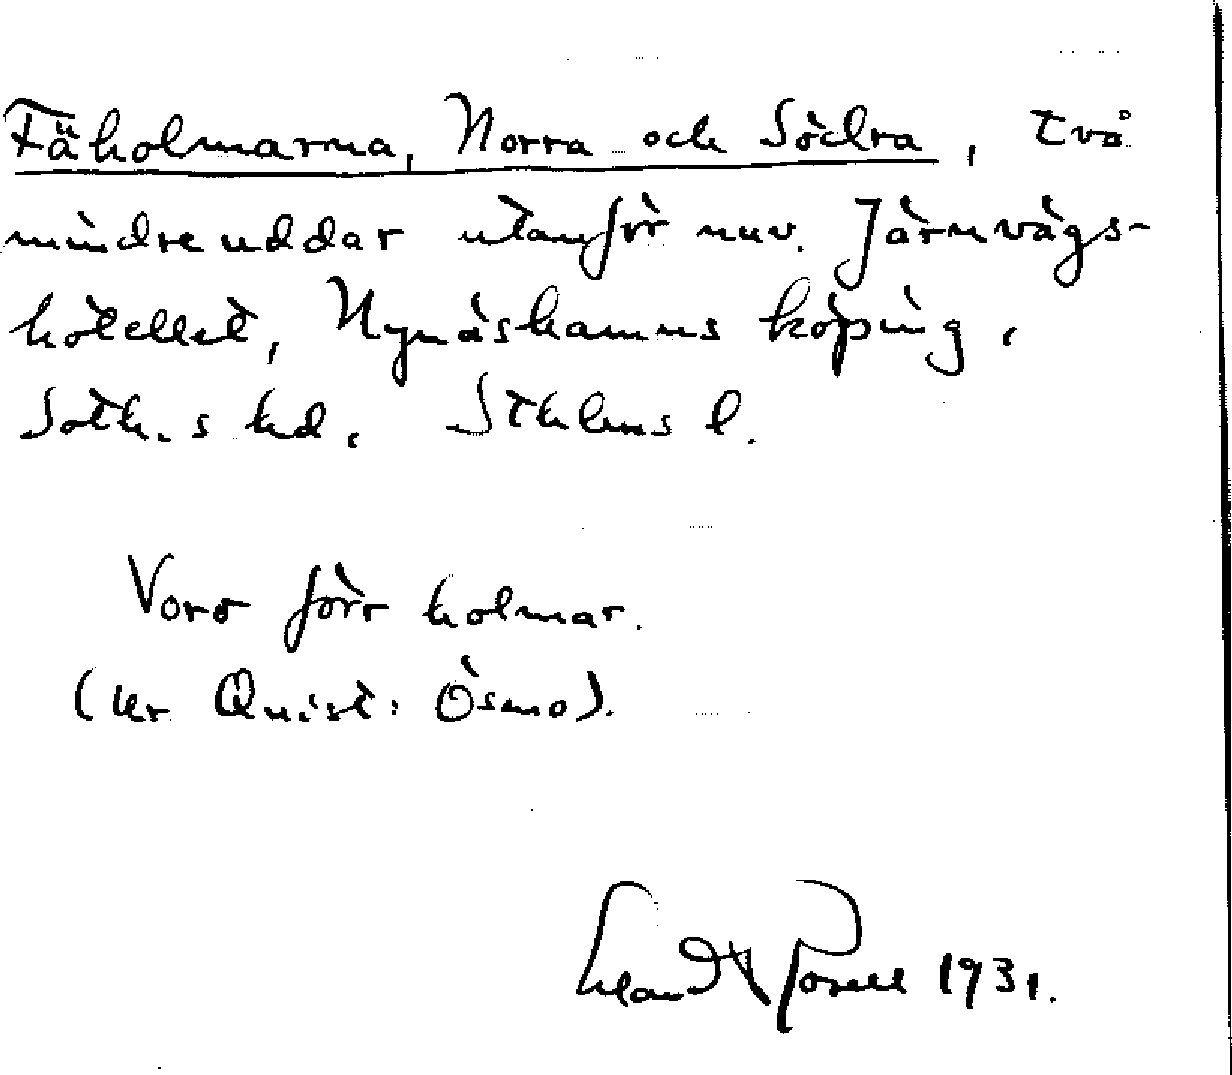 Fäholmarna, Norra och Södra, två
mindre uddar utanför nuv. Järnvägs-
hotellet, Nynäshamns köping,
Soth.s hd, Sthlms l.
Voro förr holmar.
(Ur Quist: Ösmo).
Erland Rosell 1931.